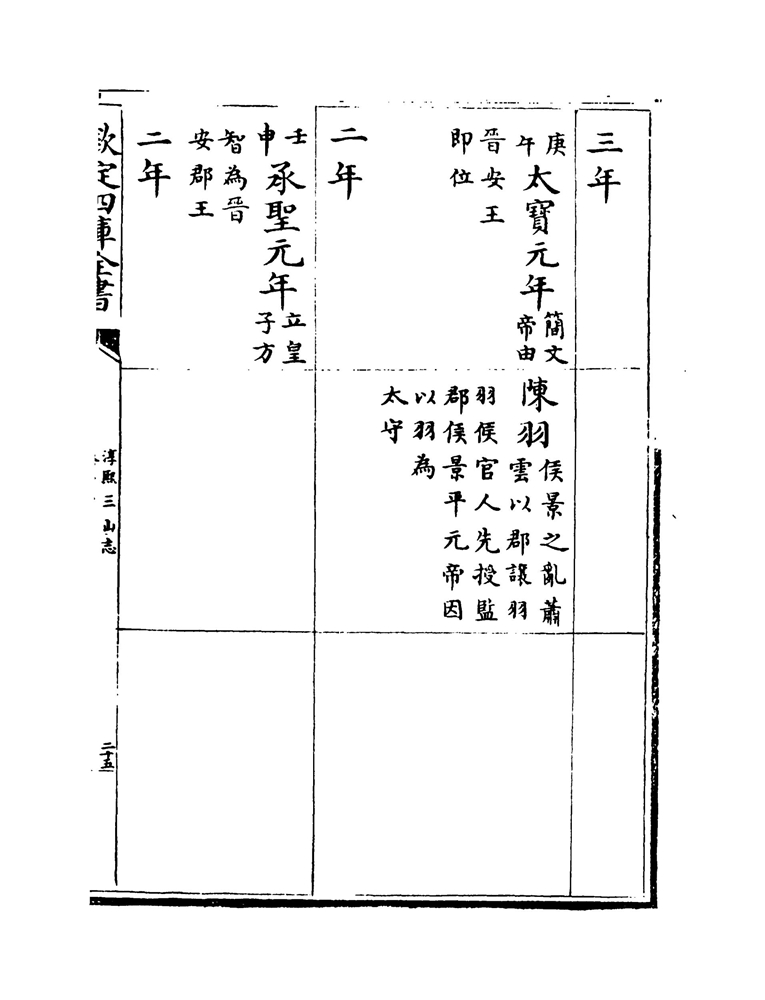 三年
庚午太寶元年簡文帝由
晉安王
即位
陳羽侯景之亂蕭雲以郡讓羽
羽侯官人先授監
郡侯景平元帝因
以羽為
太守
二年
壬申承聖元年立皇子方
智為晉
安郡王
二年
欽定四庫全書
淳熙三山志
二十五